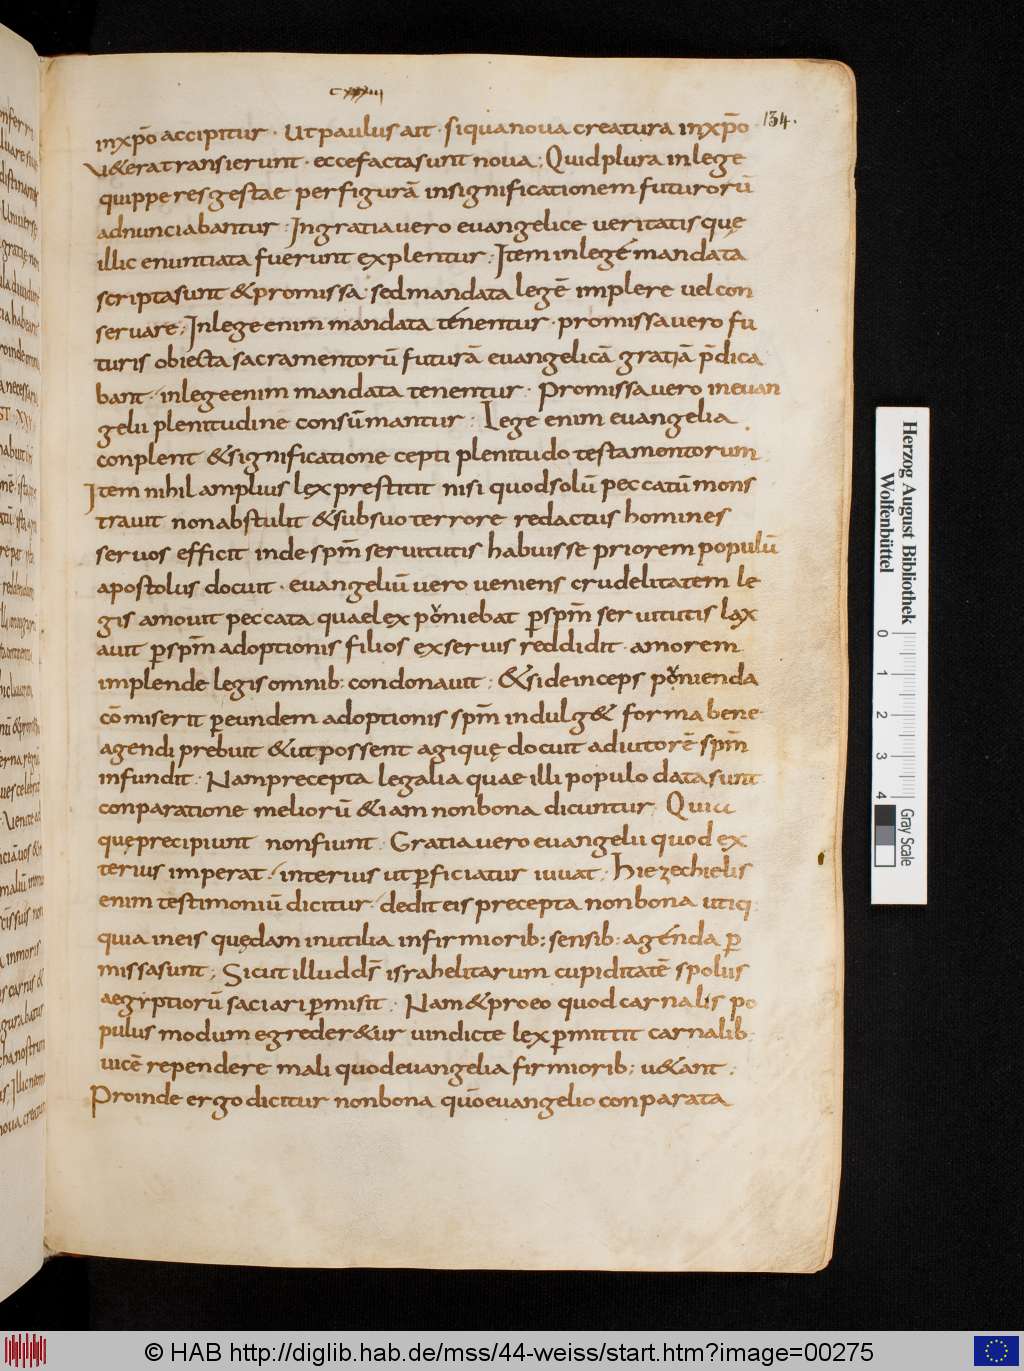 cxxxiiii
134.
inxp̄o accipitur · Ut paulus ait · si qua noua creatura inxp̄o
u&era transierunt · ecce facta sunt noua ; Quid plura in lege
quippe res gestae per figurā in significationem futurorū
adnunciabantur : In gratia uero euangelice ueritatis quę
illic enuntiata fuerunt explentur ; Item in lege mandata
scripta sunt & promissa · sed mandata legē implere uel con
seruare ; In lege enim mandata tenentur · promissa uero fu
turis obiecta sacramentorū futurā euangelicā gratiā p̄dica
bant · in lege enim mandata tenentur · Promissa uero in euan
gelii plenitudine consūmantur : Lege enim euangelia
conplent & significatione cepti plenitudo testamentorum
Item nihil amplius lex prestitit nisi quod solū peccatū mons
trauit non abstulit & sub suo terrore redactus homines
seruos efficit inde spm̄ seruitutis habuisse priorem populū
apostolus docuit · euangeliū uero ueniens crudelitatem le
gis amouit peccata quae lex poniebat p spm̄ seruitutis lax
auit p spm̄ adoptionis filios ex seruis reddidit · amorem
implende legis omnib: condonauit ; & si deinceps pęnienda
cōmiserit p eundem adoptionis spm̄ indulg& forma bene
agendi prebuit & ut possent agi quę docuit adiutorē spm̄
infundit : Nam precepta legalia quae illi populo data sunt
conparatione meliorū & iam non bona dicuntur · Quia
quę precipiunt non fiunt : Gratia uero euangelii quod ex
terius imperat · interius ut pficiatur iuuat ; Hiezechielis
enim testimoniū dicitur · dedit eis precepta non bona utiq:
quia in eis quędam inutilia infirmiorib: sensib: agenda p
missa sunt ; Sicut illud ds̄ israhelitarum cupiditatē spoliis
aegyptiorū saciari pmisit : Nam & pro eo quod carnalis po
pulus modum egreder&ur uindicte lex pmittit carnalib:
uicē rependere mali quod euangelia firmiorib: u&ant ;
Proinde ergo dicitur non bona quō euangelio conparata
Herzog August Bibliothek
Wolfenbüttel
0 1 2 3 4
Gray Scale
© HAB http://diglib.hab.de/mss/44-weiss/start.htm?image=00275